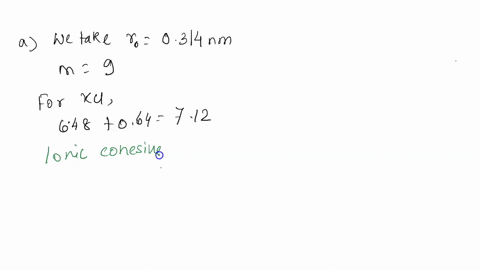 a) We take r₀ = 0.314 nm
m = 9
For xcl,
6.48 + 0.64 = 7.12
Ionic cohesive